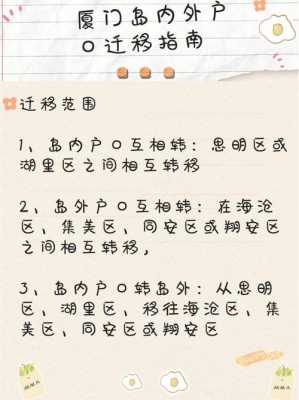 厦门岛内外户
口迁移指南
迁移范围
1、岛内户口互相转：思明区或
湖里区之间相互转移
2、岛外户口互相转：在海沧
区，集美区，同安区或翔安区
之间相互转移，
3、岛内户口转岛外：从思明
区，湖里区，移往海沧区，集
美区，同安区或翔安区